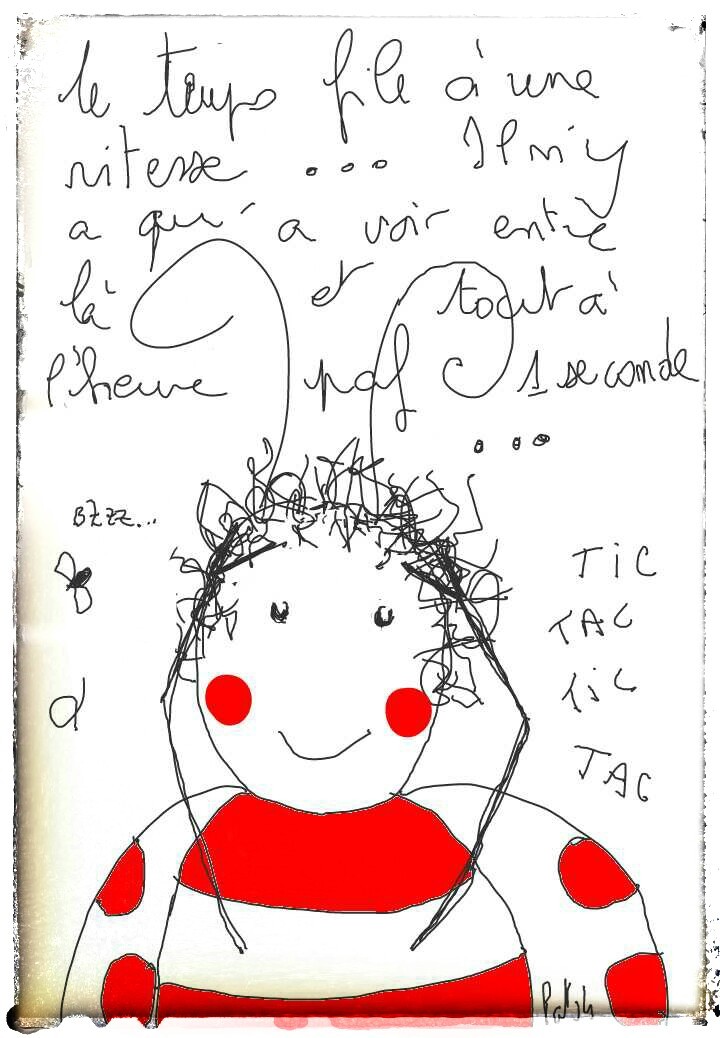 le temps file à une
vitesse ... Il n'y
a qu'à voir entre
là et tout à
l'heure paf 1 seconde
...
BZZZ...
TIC
TAC
TIC
TAC